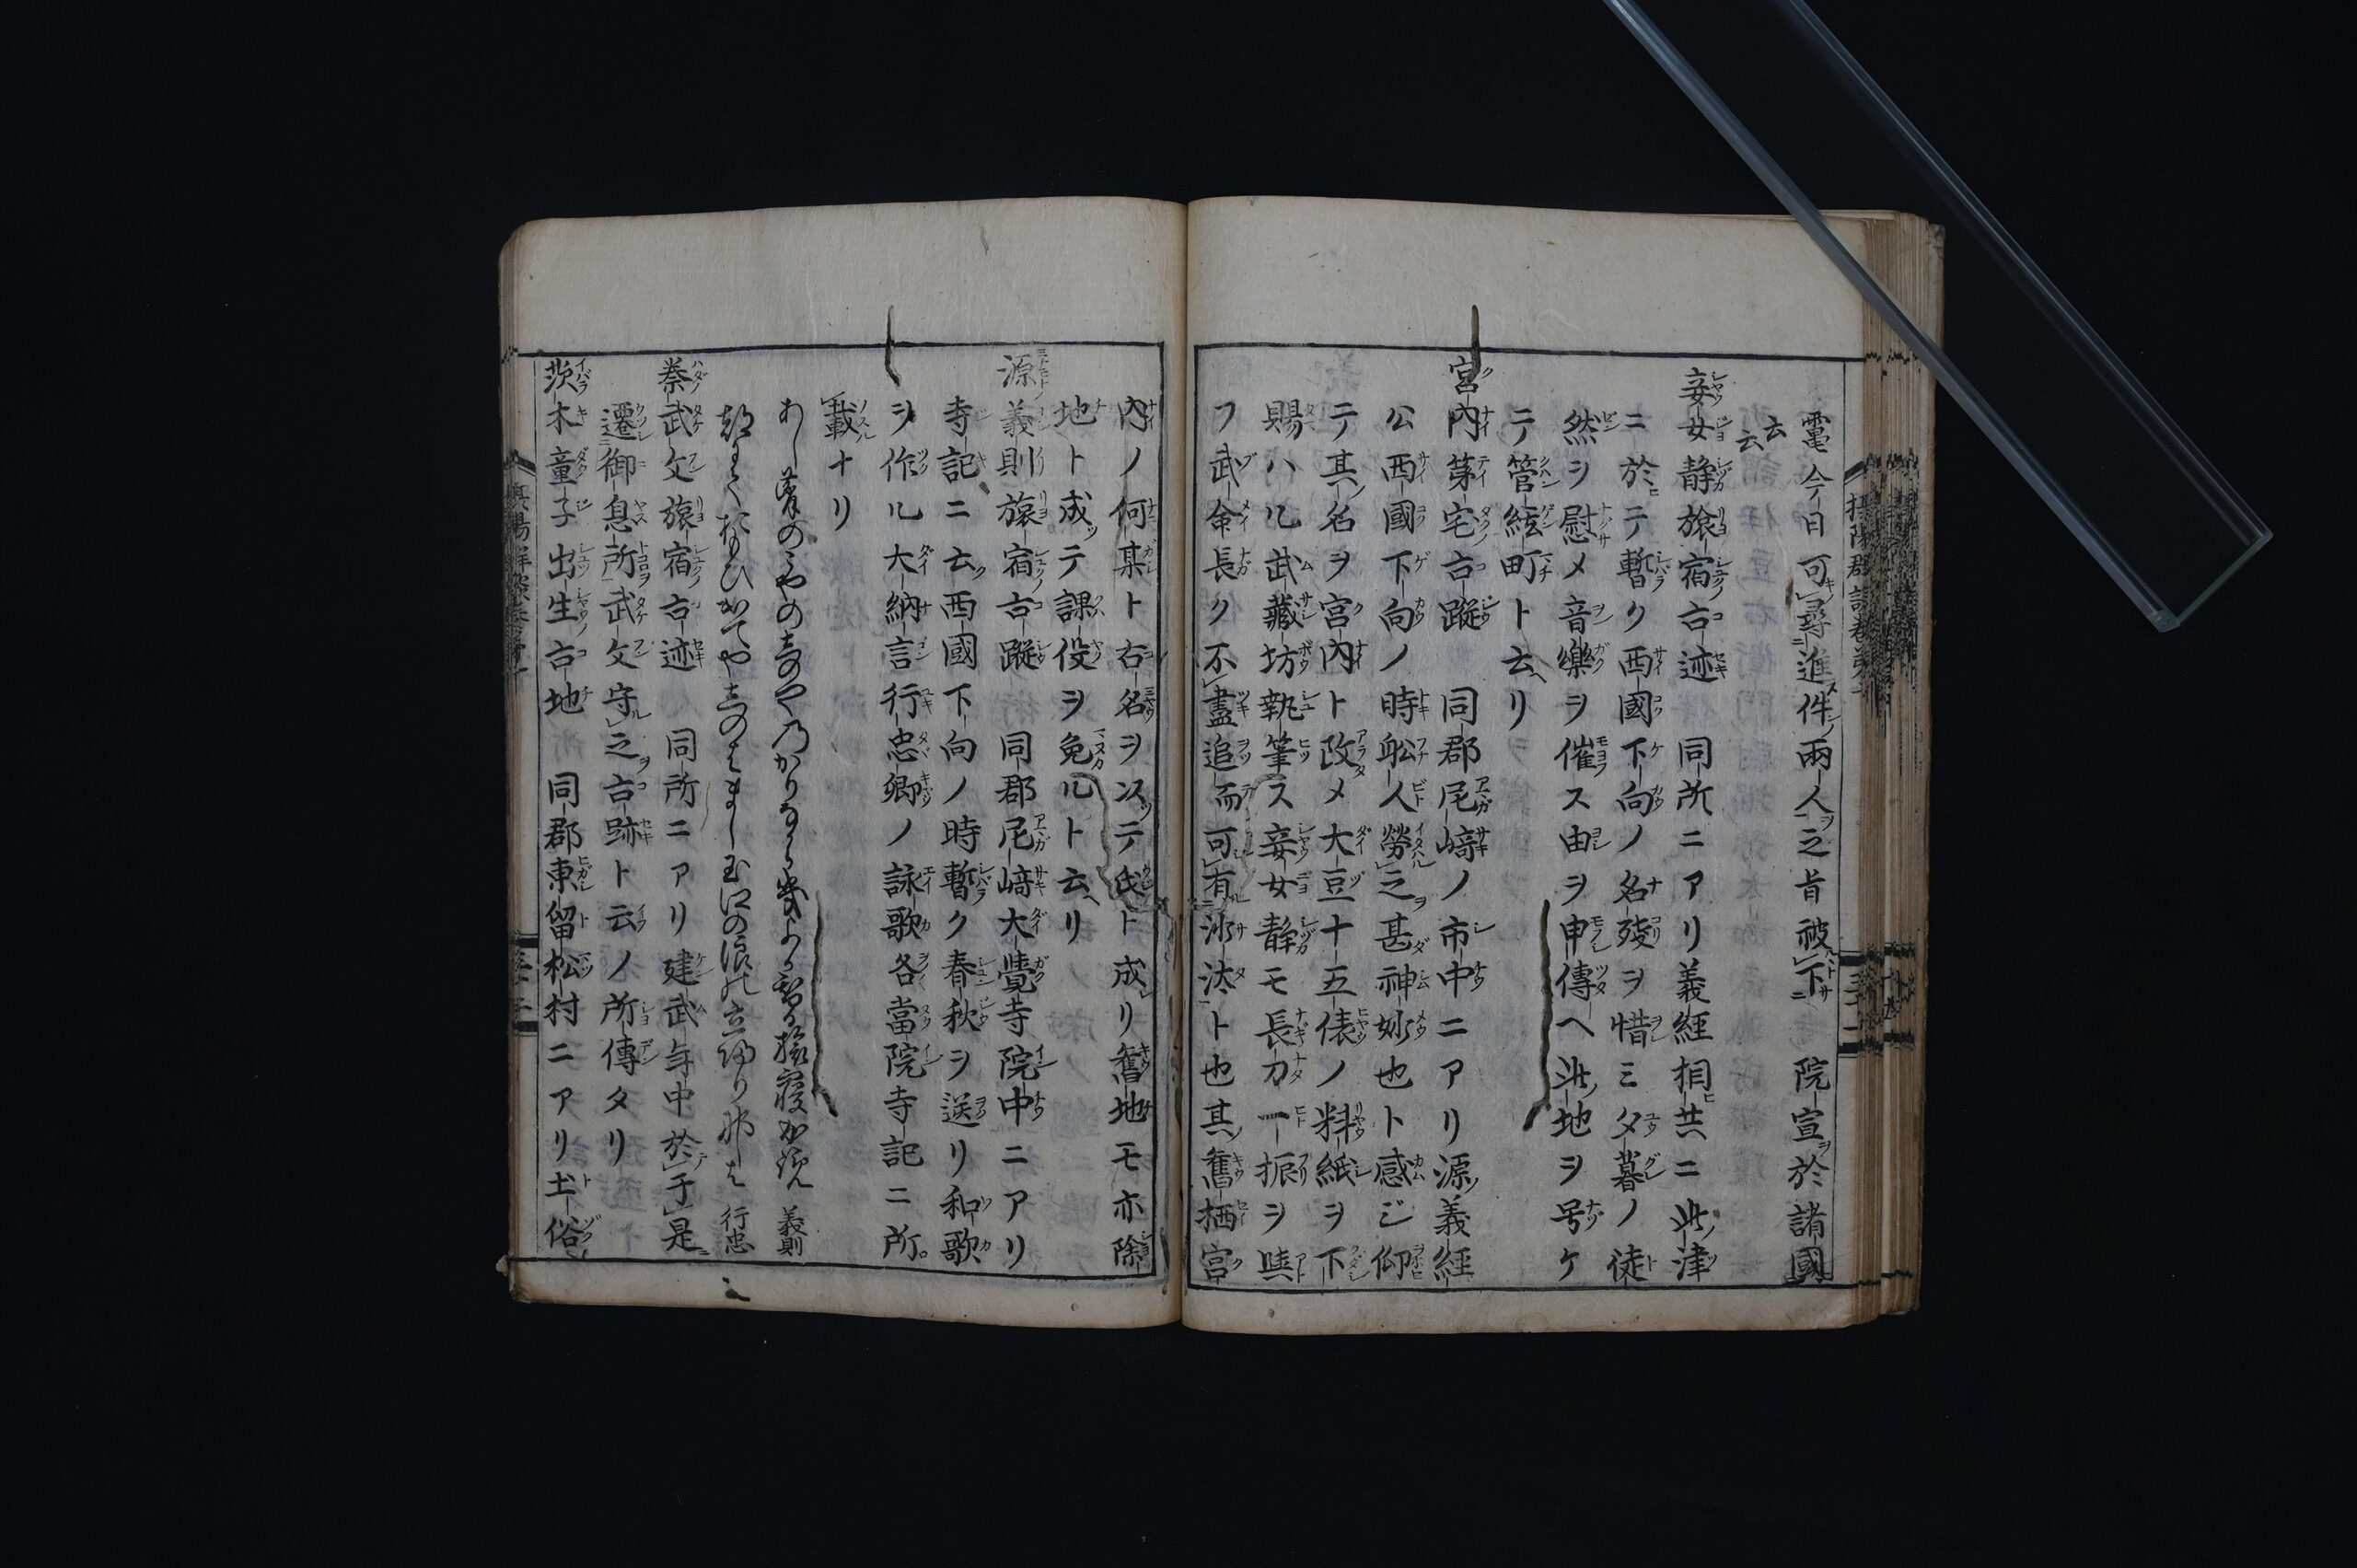 竃今日可尋進件兩人之旨被下 院宣於諸國
云云
妾女静旅宿古迹 同所ニアリ義經相共ニ此津
ニ於テ暫ク西國下向ノ名殘ヲ惜ミ夕暮ノ徒
然ヲ慰メ音樂ヲ催ス由ヲ申傳ヘ此地ヲ号ケ
テ管絃町ト云リ
宮内茅宅古蹤 同郡尼﨑ノ市中ニアリ源義經
公西國下向ノ時舩人勞之甚神妙也ト感ジ仰
テ其名ヲ宮内ト改メ大豆十五俵ノ料紙ヲ下
賜ハル武藏坊執筆ス妾女静モ長刀一振ヲ與
フ武命長ク不盡追而可有沙汰ト也其舊栖宮
内ノ何某ト右名ヲ以テ氏ト成リ舊地モ亦除
地ト成テ課役ヲ免ルト云リ
源義則旅宿古蹤 同郡尼﨑大覺寺院中ニアリ
寺記ニ云西國下向ノ時暫ク春秋ヲ送リ和歌
ヲ作ル大納言行忠卿ノ詠歌各當院寺記ニ所
載ナリ
義則
行忠
秦武文旅宿古迹 同所ニアリ建武年中於于是
遷御息所武文守之古跡ト云ノ所傳タリ
茨木童子出生古地 同郡東留松村ニアリ土俗